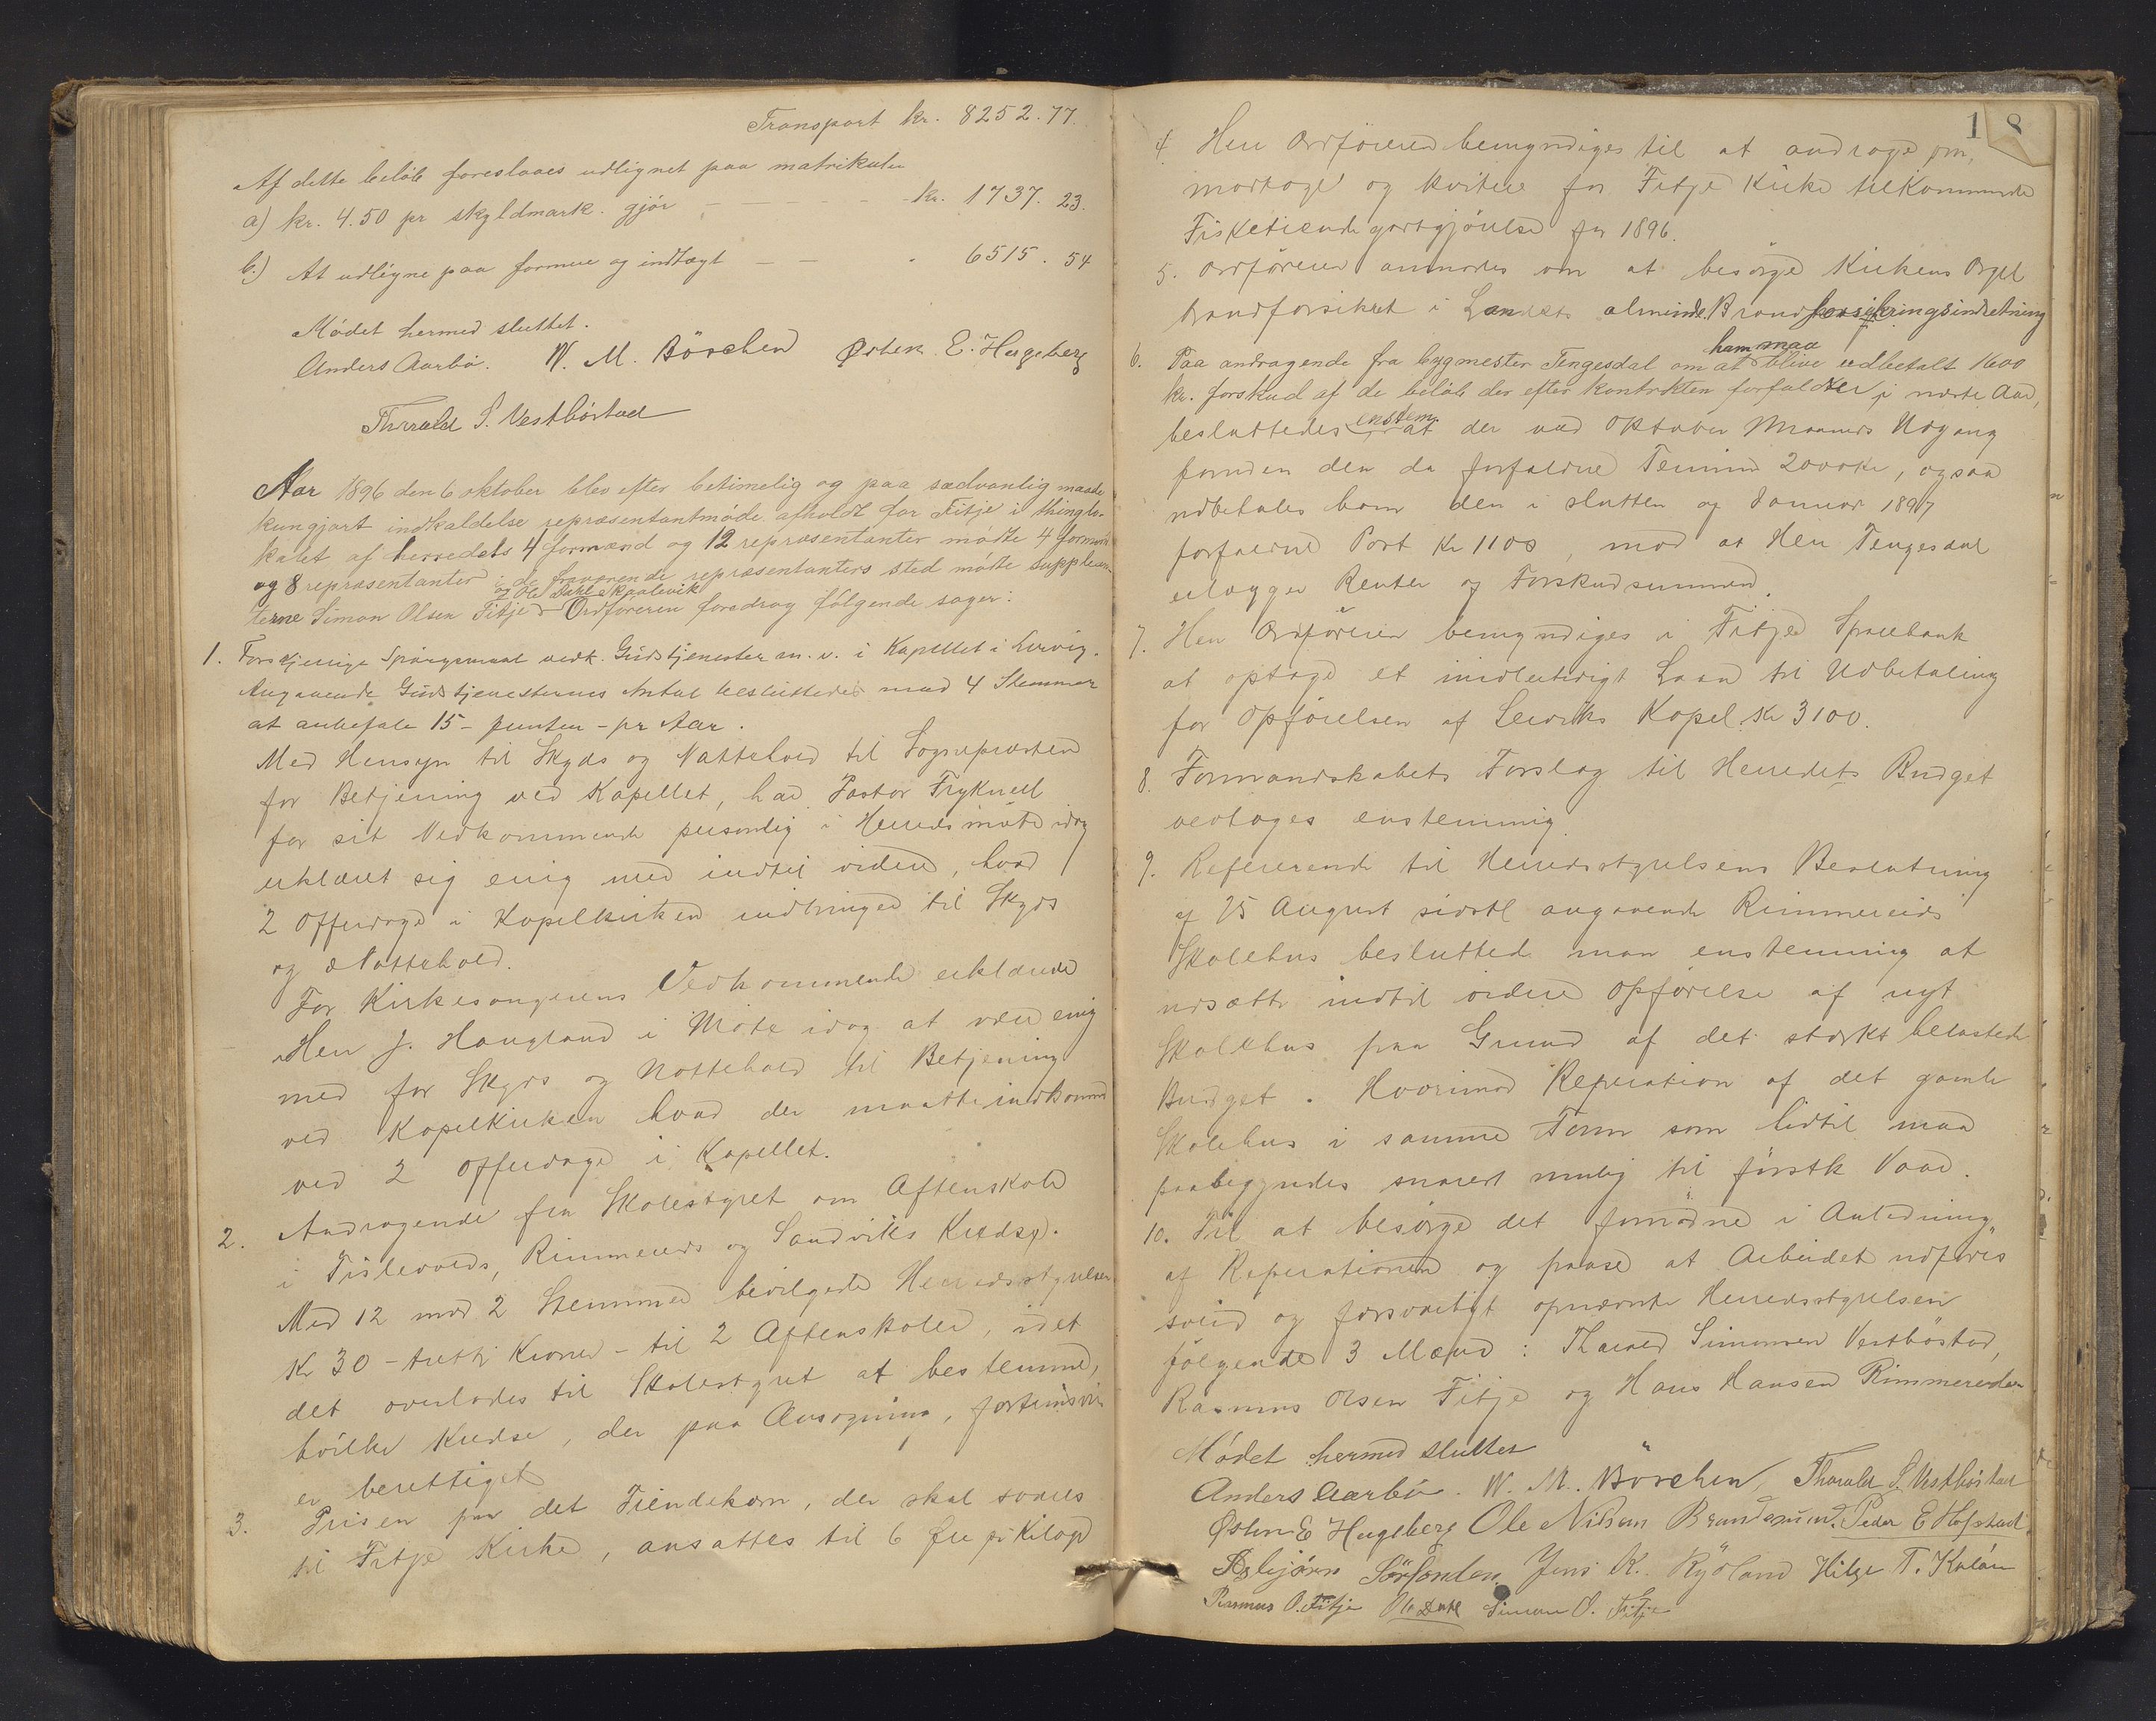 Transport kr. 8252.77.
Af dette beløb foreslaaes udlignet paa matrikulen
a) kr. 4.50 pr skyldmark. gjør - - - - - kr. 1737. 23.
b.) At udligne paa formue og indtægt - - 6515. 54
Mødet hermed sluttet.
Anders Aarbø. W. M. Børchen Østen E. Hageberg
Thorald S. Vestbøstad
Aar 1896 den 6 oktober blev efter betimelig og paa sædvanlig maade
kungjort indkaldelse repræsentantmøde afholdt for Fitje i thinglo-
kalet af herredets 4 formænd og 12 repræsentanter mødte 4 formænd
og 8 repræsentanter i de fraværende repræsentanters sted mødte supplean-
og Ole Dahl Skaalevik
terne Simon Olsen Fitje Ordføreren foredrog følgende sager:
1. Forskjellige Spørgsmaal vedk. Gudstjenester m. v. i Kapellet i Lervig.
Angaaende Gudstjenesternes Antal besluttedes med 4 Stemmer
at anbefale 15 - femten - pr Aar.
Med Hensyn til Skyds og Nattehold til Sognepræsten
for Betjening ved Kapellet, har Pastor
for sit Vedkommende personlig i Herredsmøte idag
erklæret sig enig med indtil videre, hvad
2 Offerdage i Kapelkirken indbringer til Skyds
og Nattehold.
For Kirkesangerens Vedkommende erklærede
Herr J. Haugland i Møte idag at være enig
med for Skyds og Nattehold til Betjening
ved Kapelkirken hvad der maatte indkomme
ved 2 Offerdage i Kapellet.
2. Andragende fra Skolestyret om Aftenskole
i Tislevolds, Rimmereids og Sandviks Kredse.
Med 12 mod 2 Stemmer bevilgede Herredsstyrelsen
Kr 30 - tretti Kroner - til 2 Aftenskoler, idet
det overlades til Skolestyret at bestemme,
hvilke Kredse, der paa Ansøgning, fortrinsvis
er berettiget
3. Prisen paa det Tiendekorn, der skal svares
til Fitje Kirke, ansættes til 6 Øre pr Kilogr
18
4. Herr Ordføreren bemyndiges til at andrage om,
modtage og kvittere for Fitje Kirke tilkommende
Fisketiendegodtgjørelse for 1896.
5. Ordføreren anmodes om at besørge Kirkens Orgel
brandforsikret i Landets alminde. Brandforsikringsindretning
6. Paa andragende fra bygmester Tengesdal om at ham maa blive udbetalt 1600
kr. forskud af de beløb der efter kontrakten forfalder i næste Aar,
besluttedes enstem. at der ved Oktober Maaneds Udgang
foruden den da forfaldne Termin 2000 Kr, ogsaa
udbetales ham den i slutten og Januar 1897
forfaldne Part Kr 1100, mod at Herr Tengesdal
erlægger Renter og Forskudsummen.
7. Herr Ordføreren bemyndiges i Fitje Sparebank
at optage et midlertidigt Laan til Udbetaling
for Opførelsen af Lerviks Kapel Kr 3100.
8. Formandskabets Forslag til Herredets Budget
vedtoges enstemmig.
9. Refererende til Herredsstyrelsens Beslutning
af 25 August sidstl angaaende Rimmereids
Skolehus besluttede man enstemmig at
udsætte indtil videre Opførelse af nyt
Skolehus paa Grund af det stærkt belastede
Budget. Hvorimod Reperation af det gamle
Skolehus i samme Form som hidtil maa
paabegyndes snarest mulig til første Vaar.
10. Til at besørge det fornødne i Anledning
af Reperationen og paase at Arbeidet udføres
solid og forsvarligt opnævnte Herredsstyrelsen
følgende 3 Mænd: Thorald Simonsen Vestbøstad,
Rasmus Olsen Fitje og Hans Hansen Rimmereide
Mødet hermed sluttet
Anders Aarbø. W. M. Børchen, Thorald S. Vestbøstad
Østen E Hageberg Ole Nilsen Brandasund. Peder E Hofstad
Asbjørn Sørfonden Jens K. Rydland Hilge T. Kaløen
Rasmus O. Fitje Ole Dahl Simon O. Fitje